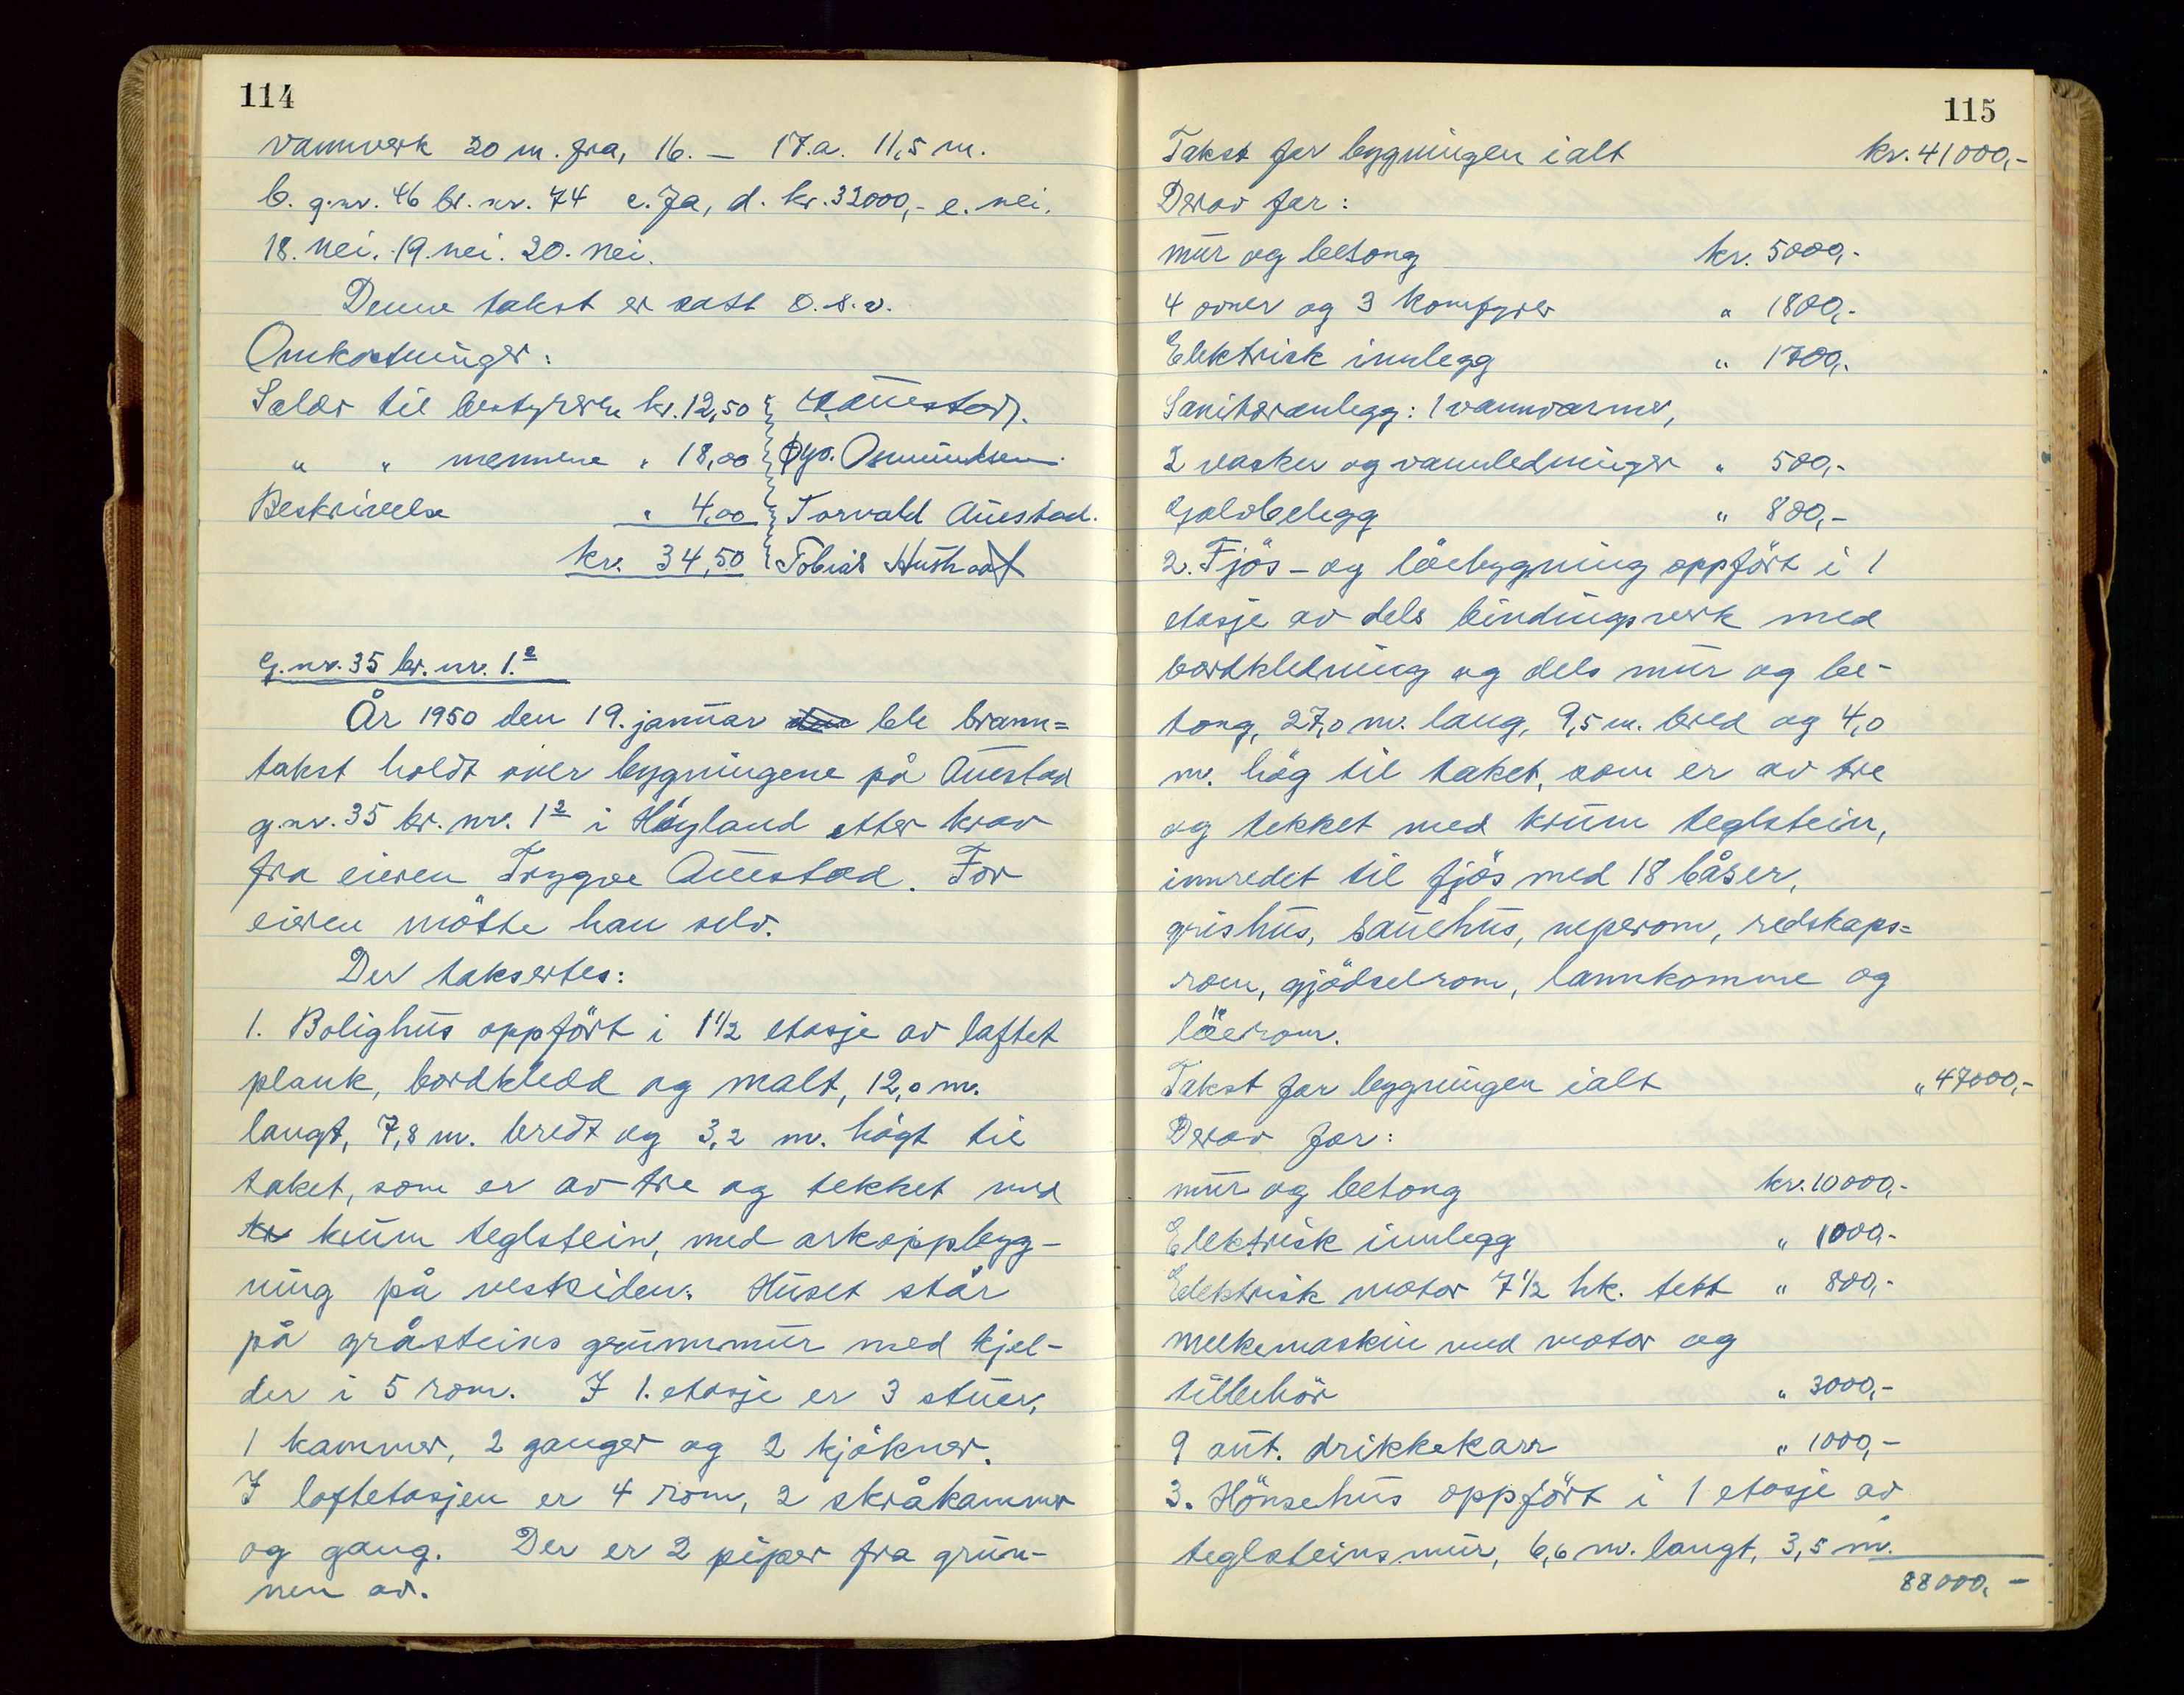 114
vannverk 20 m. fra, 16. — 17.a. 11,5 m.
b. g.nr. 46 br. nr. 74 c. Ja, d. kr. 32000,- e. nei.
18. nei. 19. nei. 20. nei.
Denne takst er satt o.s.v.
Omkostninger:
Salær til bestyreren kr. 12,50
" " mennene " 18,00 Osmundsen
Beskrivelse " 4,00 Torvald Auestad.
kr. 34,50 Tobias
G.nr. 35 br. nr. 1.2
År 1950 den 19. januar ble brann=
takst holdt over bygningene på Auestad
g.nr. 35 br. nr. 1 2 i Høyland etter krav
fra eieren Trygve Auestad. For
eieren mötte han selv.
Der taksertes:
1. Bolighus oppfört i 1 1/2 etasje av laftet
plank, bordkledd og malt, 12,0 m.
langt, 7,8 m. bredt og 3,2 m. högt til
taket, som er av tre og tekket med
kr krum teglstein, med arkoppbyg-
ning på vestsiden. Huset står
på gråsteins grunnmur med kjel-
der i 5 rom. I 1. etasje er 3 stuer,
1 kammer, 2 ganger og 2 kjökner.
I loftetasjen er 4 rom, 2 skråkammer
og gang. Der er 2 piper fra grun-
nen av.
115
Takst for bygningen ialt kr. 41000,-
Derav for:
mur og betong kr. 5000,-
4 ovner og 3 komfyrer " 1800,-
Elektrisk innlegg " 1700,-
Sanitæranlegg: 1 vannvarmer,
2 vasker og vannledninger " 500,-
Golvbelegg " 800,-
2. Fjös- og löebygning oppfört i 1
etasje av dels bindingsverk med
bordkledning og dels mur og be-
tong, 27,0 m. lang, 9,5 m. bred og 4,0
m. hög til taket, som er av tre
og tekket med krum teglstein,
innredet til fjös med 18 båser,
grishus, sauehus, neperom, redskaps=
rom, gjödselrom, lannkomme og
löerom.
Takst for bygningen ialt " 47000,-
Derav for:
mur og betong kr. 10000,-
Elektrisk innlegg " 1000,-
Elektrisk motor 7 1/2 hk. tett " 800,-
melkemaskin med motor og
tilbehör " 3000,-
9 aut. drikkekarr " 1000,-
3. Hönsehus oppfört i 1 etasje av
teglsteinsmur, 6,6 m. langt, 3,5 m.
88000,-